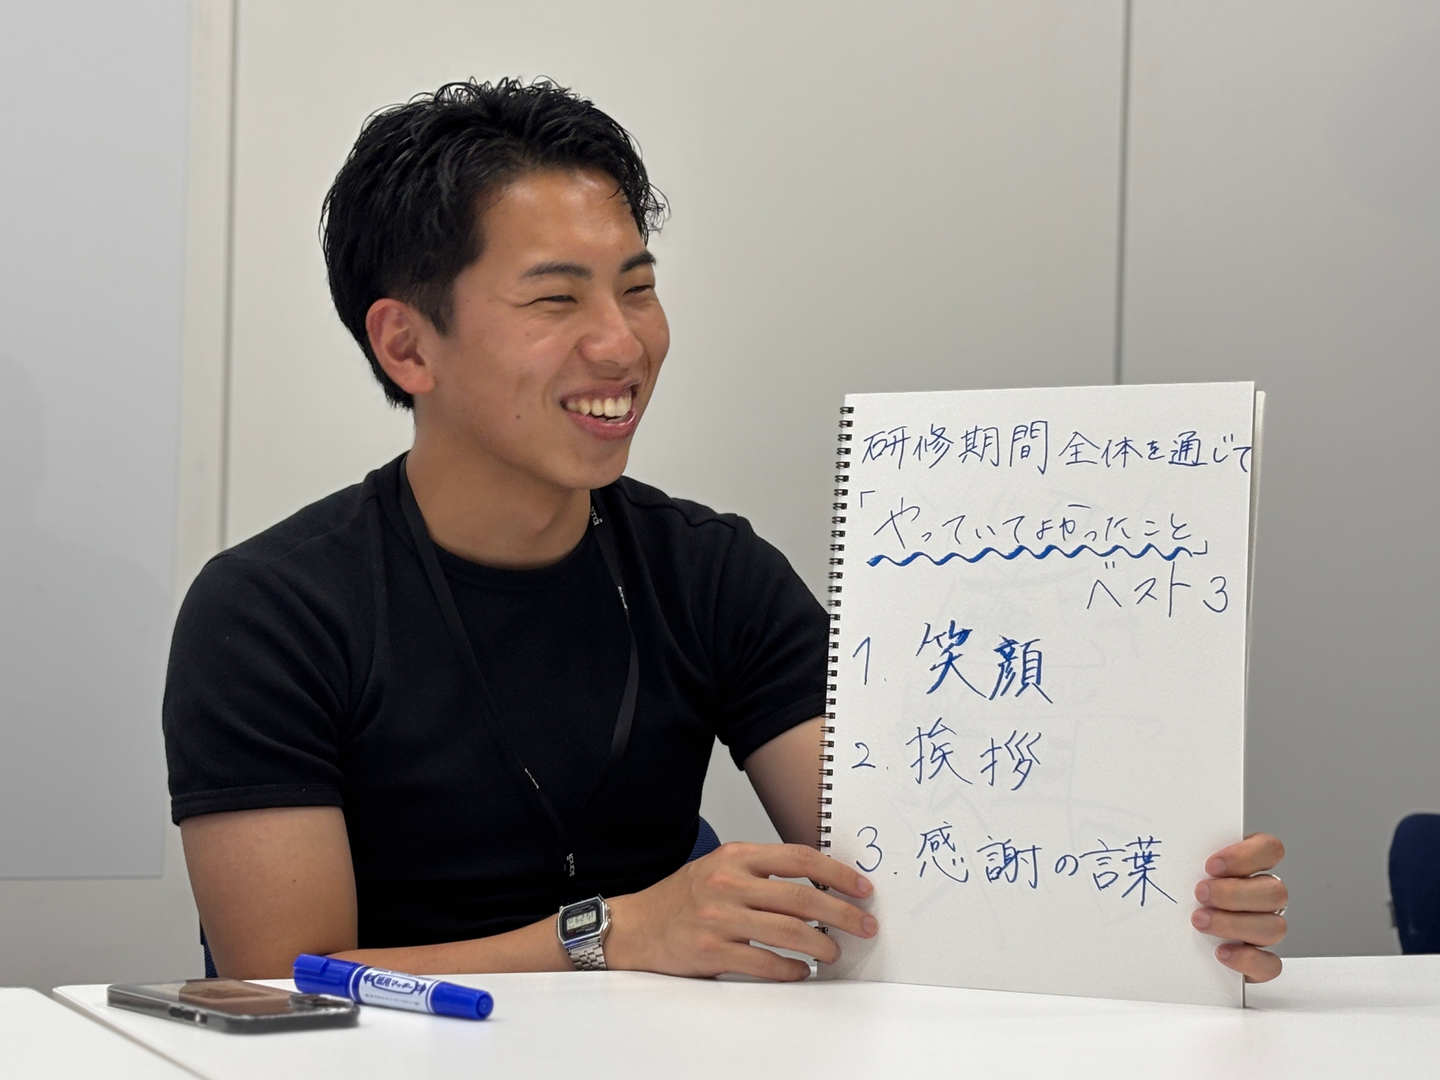 研修期間全体を通じて
「やっていてよかったこと」
ベスト3
1. 笑顔
2. 挨拶
3. 感謝の言葉